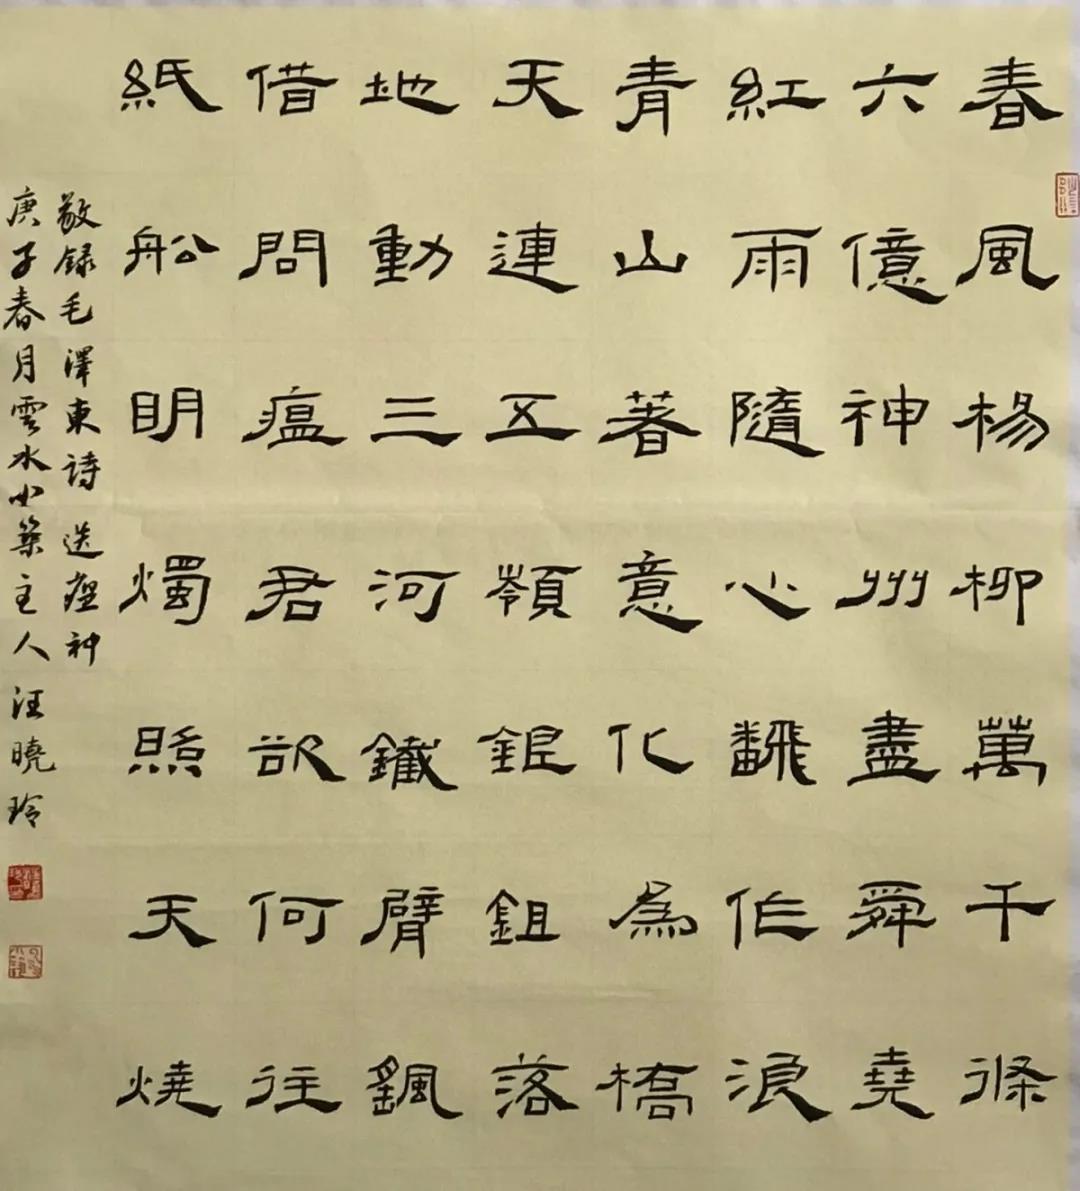 春風楊柳萬千條
六億神州盡舜堯
紅雨隨心飜作浪
青山著意化為橋
天連五嶺銀鉏落
地動三河鐵臂颻
借問瘟君欲何往
紙船明燭照天燒
敬録毛澤東詩 送瘟神
庚子春月雲水小築主人 汪曉玲